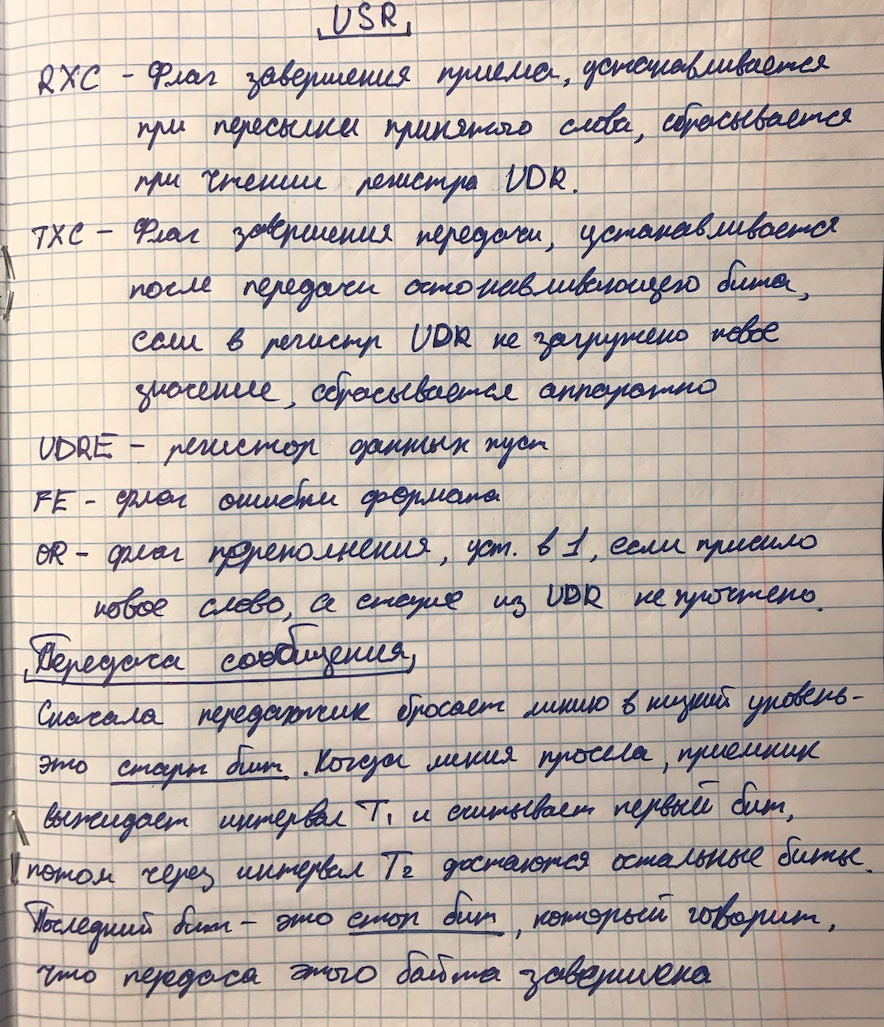 USR
RXC - Флаг завершения приема, устанавливается
при пересылки принятого слова, сбрасывается
при чтении регистра UDR.
TXC - Флаг завершения передачи, устанавливается
после передачи останавливающего бита,
если в регистр UDR не загружено новое
значение, сбрасывается аппаратно
UDRE - регистор данных пуст
FE - флаг ошибки формата
OR - флаг переполнения, уст. в 1, если пришло
новое слово, а старое из UDR не прочтено.
Передача сообщения,
Сначала передатчик бросает линию в низкий уровень-
это старт бит. Когда линия просела, приемник
выжидает интервал T₁ и считывает первый бит,
потом через интервал T₂ достаются остальные биты.
Последний бит - это стоп бит, который говорит,
что передаса этого байта завершена